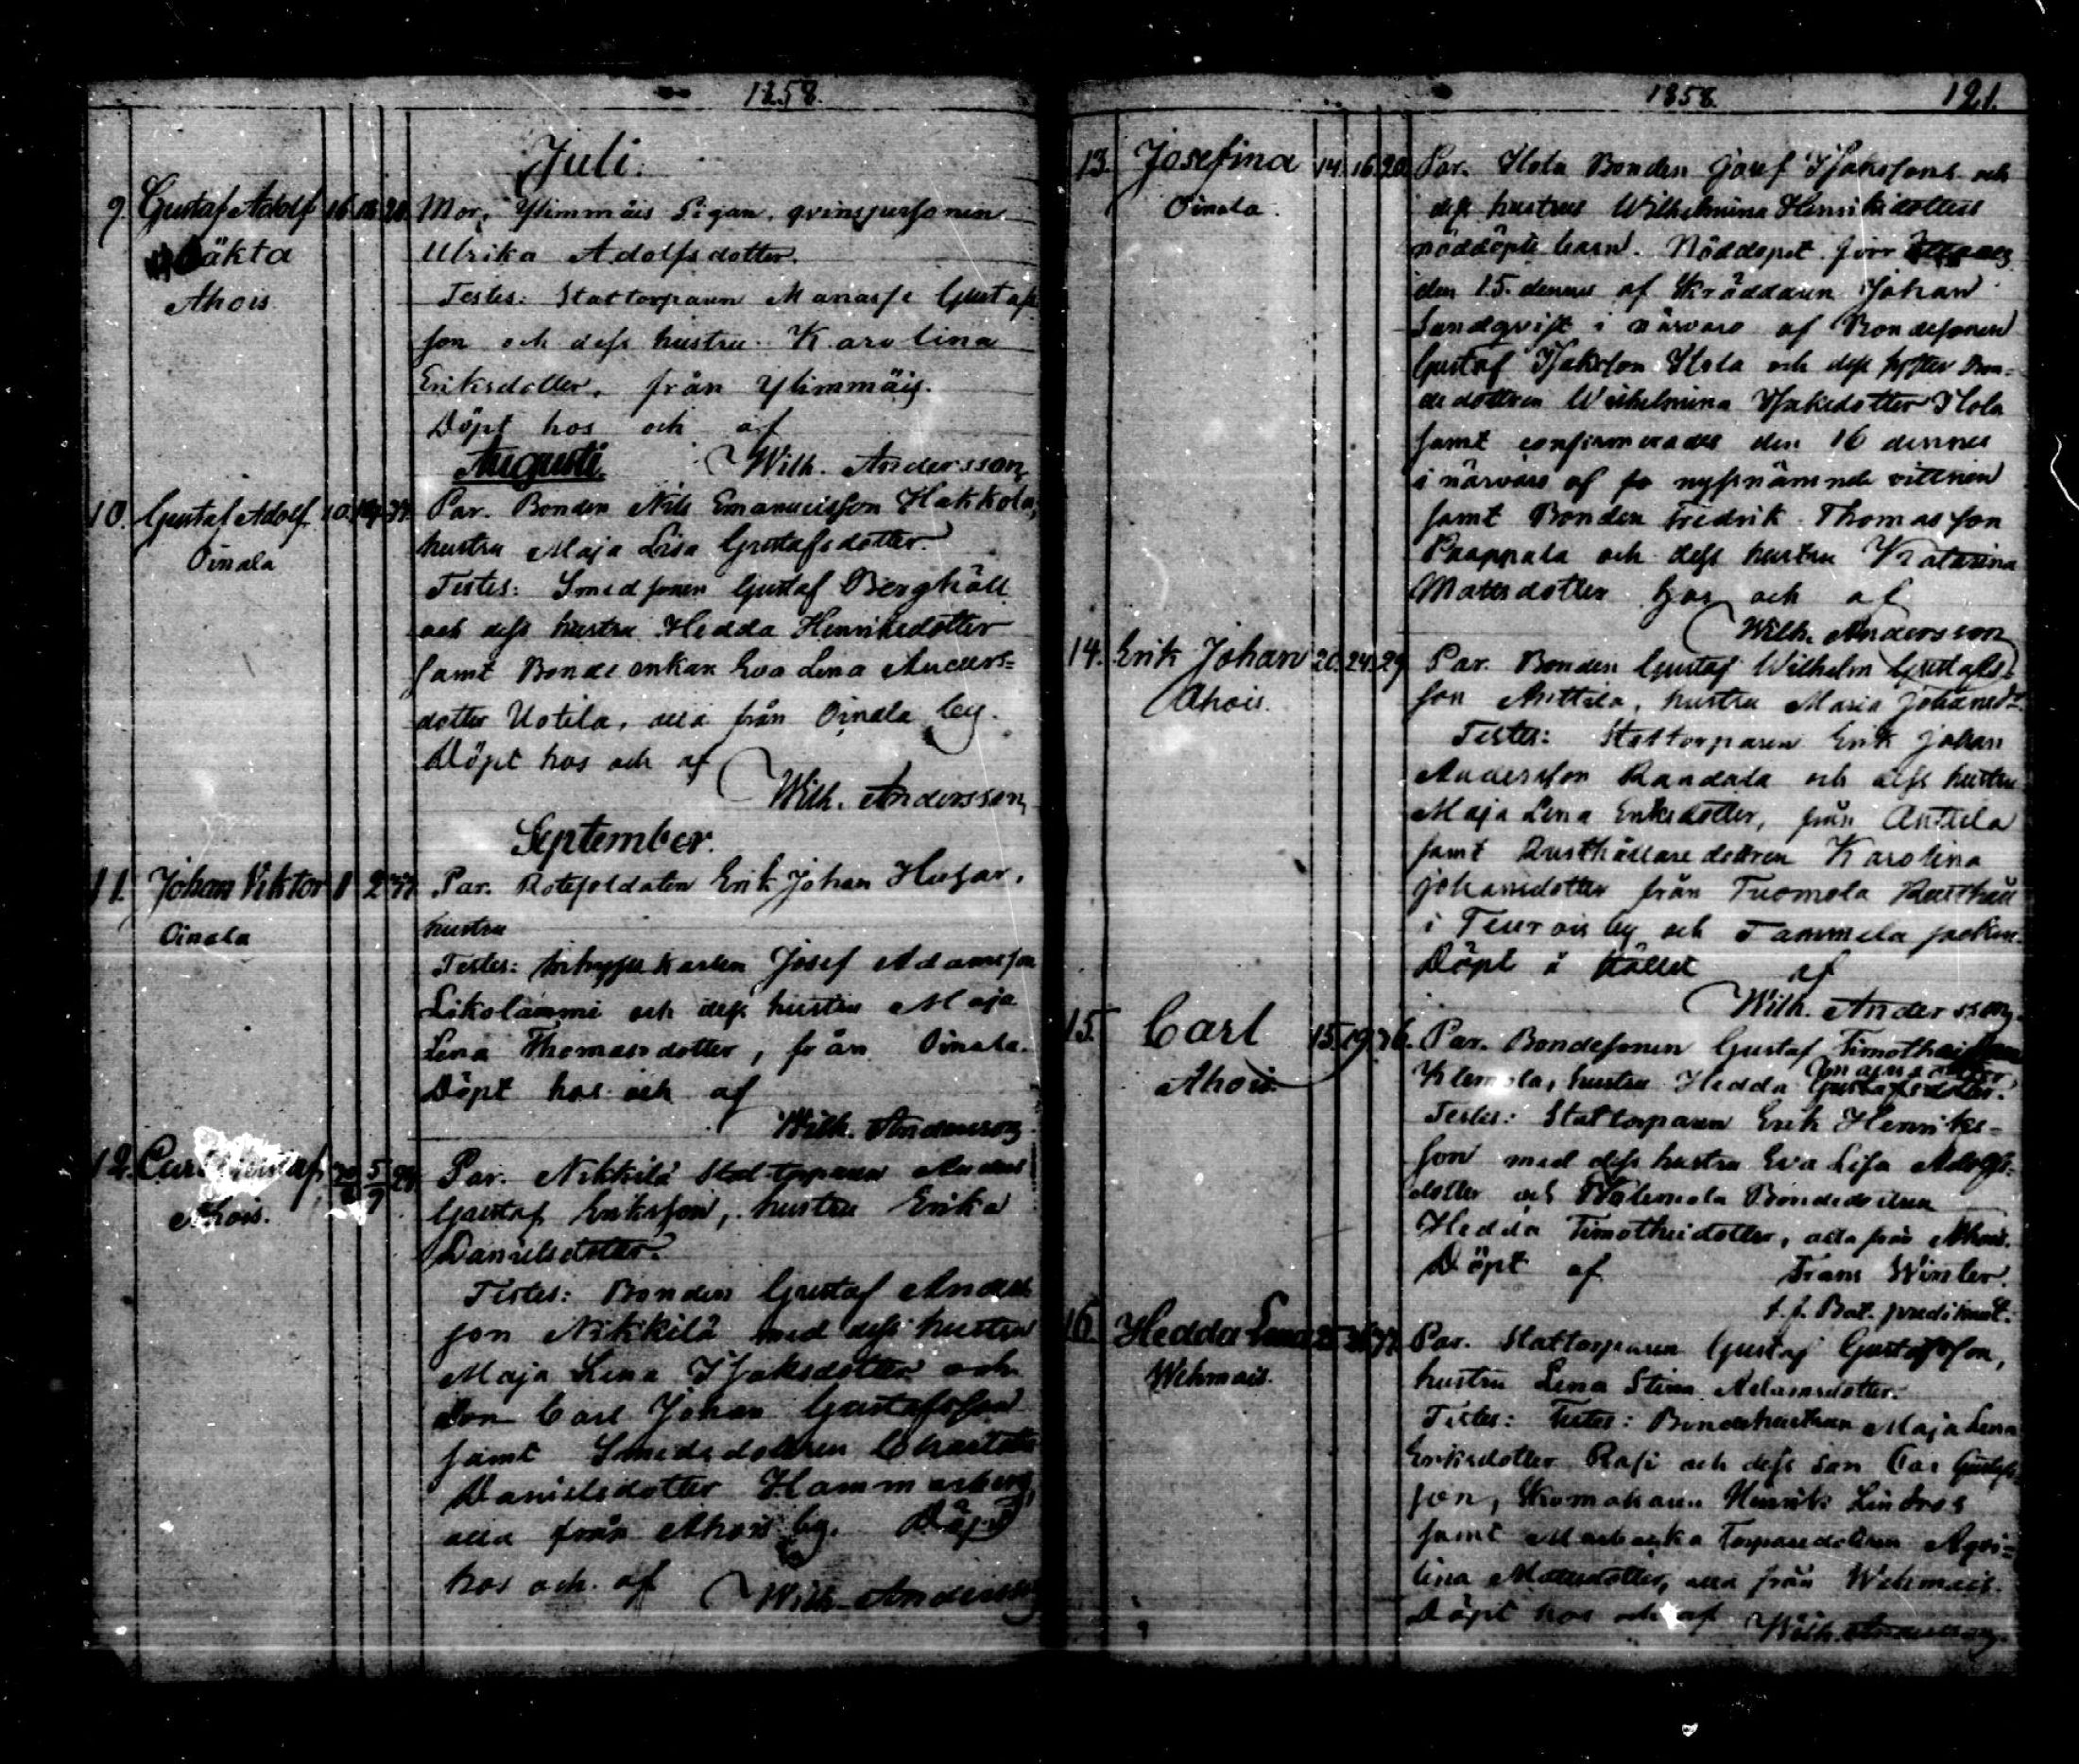 1858.
Juli.
9. Gustaf Adolf 16. 18. 20. Mor, Ylimmäis Pigan, qvinspersonen
äkta Ulrika Adolfsdotter.
Ahois Testes: Stattorparen Manasse Gustafs
son och dess hustru Karolina
Eriksdotter, från Ylimmäis.
Döpt hos och af
Wilh. Andersson
Augusti.
10. Gustaf Adolf 10. Par. Bonden Nils Emanuelsson Hakkola,
Oinala hustru Maja Lisa Gustafsdotter.
Testes: Smedsonen Gustaf Berghäll
och dess hustru Hedda Henriksdotter
samt Bonde enkan Eva Lena Anders=
dotter Uotila, alla från Oinala by.
Döpt hos och af
Wilh. Andersson
September.
11. Johan Viktor 1 2 Par. Rotesoldaten Erik Johan Husar,
Oinala hustru
Testes: Josef Adamsson
Likolammi och dess hustru Maja
Lena Thomasdotter, från Oinala.
Döpt hos och af
Wilh. Andersson
12. Carl Gustaf 5/9 Par. Nikkilä Stattorparen Anders
Ahois. Gustaf Eriksson, hustru Erika
Danielsdotter.
Testes: Bonden Gustaf Anders
son Nikkilä med dess hustru
Maja Lena Isaksdotter och
son Carl Johan Gustafsson
samt Smedsdottren Charlotta
Danielsdotter Hammarberg,
alla från Ahois by. Döpt
hos och af Wilh. Andersson
1858. 121.
13. Josefina 14. 16. 20. Par. Ilola Bonden Josef Isakssons och
Oinala. dess hustrus Wilhelmina Henriksdotters
nöddöpte barn. Nöddöpet
den 15. dennes af Skräddaren Johan
Sandqvist i närvaro af Bondesonen
Gustaf Isaksson Ilola och dess syster Bon=
dedottren Wilhelmina Isaksdotter Ilola
samt confirmerades den 16 dennes
i närvaro af nyssnämnde vittnen
samt Bonden Fredrik Thomasson
Paappala och dess hustru Katarina
Mattsdotter hos och af
Wilh. Andersson
14. Erik Johan 20. 24. 29. Par. Bonden Gustaf Wilhelm Gustafs
Ahois. son Anttila, hustru Maria Johansdr.
Testes: Stattorparen Erik Johan
Andersson Randala och dess hustru
Maja Lena Eriksdotter, från Anttila
samt Rusthållare dottren Karolina
Johansdotter från Tuomola Rusthåll
i Teurois by och Tammela socken.
Döpt i af
Wilh. Andersson
15. Carl 15. 19. 36. Par. Bondesonen Gustaf Timotheisson
Ahois Klemola, hustru Hedda Gustafsdotter.
Testes: Stattorparen Erik Henriks-
son med dess hustru Eva Lisa Adolfs-
dotter och Klemola Bondedottren
Hedda Timotheidotter, alla från Ahois.
Döpt af Frans Winter.
t. f. Bat. predikant.
16. Hedda Lena 25. Par. Stattorparen Gustaf Gustafsson,
Wehmais. hustru Lena Stina Adamsdotter.
Testes: Testes: Bondehustrun Maja Lena
Eriksdotter Rasi och dess son Gustafs
son, Skomakaren Henrik Lindros
samt Torparedottren Aqvi=
lina Mattsdotter, alla från Wehmais.
Döpt hos och af Wilh. Andersson